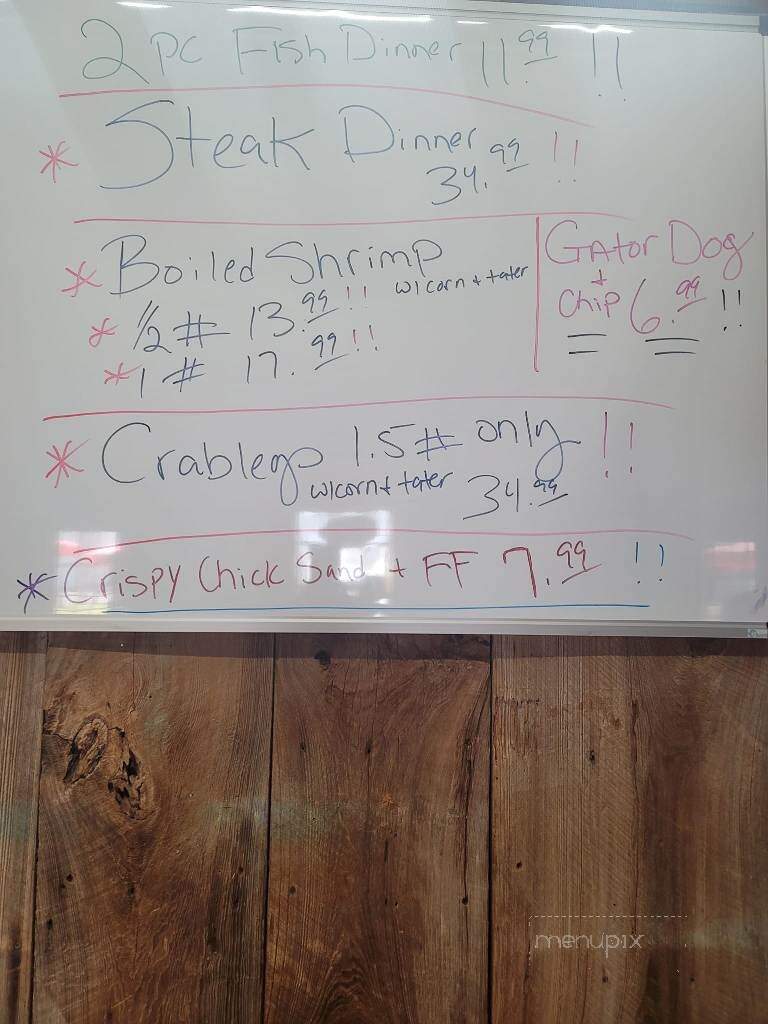 2 PC Fish Dinner 11.99 !!
* Steak Dinner 34.99 !!
* Boiled Shrimp w/corn + tater
* 1/2 # 13.99 !!
* 1 # 17.99 !!
GAtor Dog
+
Chip 6.99 !!
* Crablegs 1.5# only !!
w/corn + tater 34.99
* Crispy Chick Sand + FF 7.99 !!
menupix